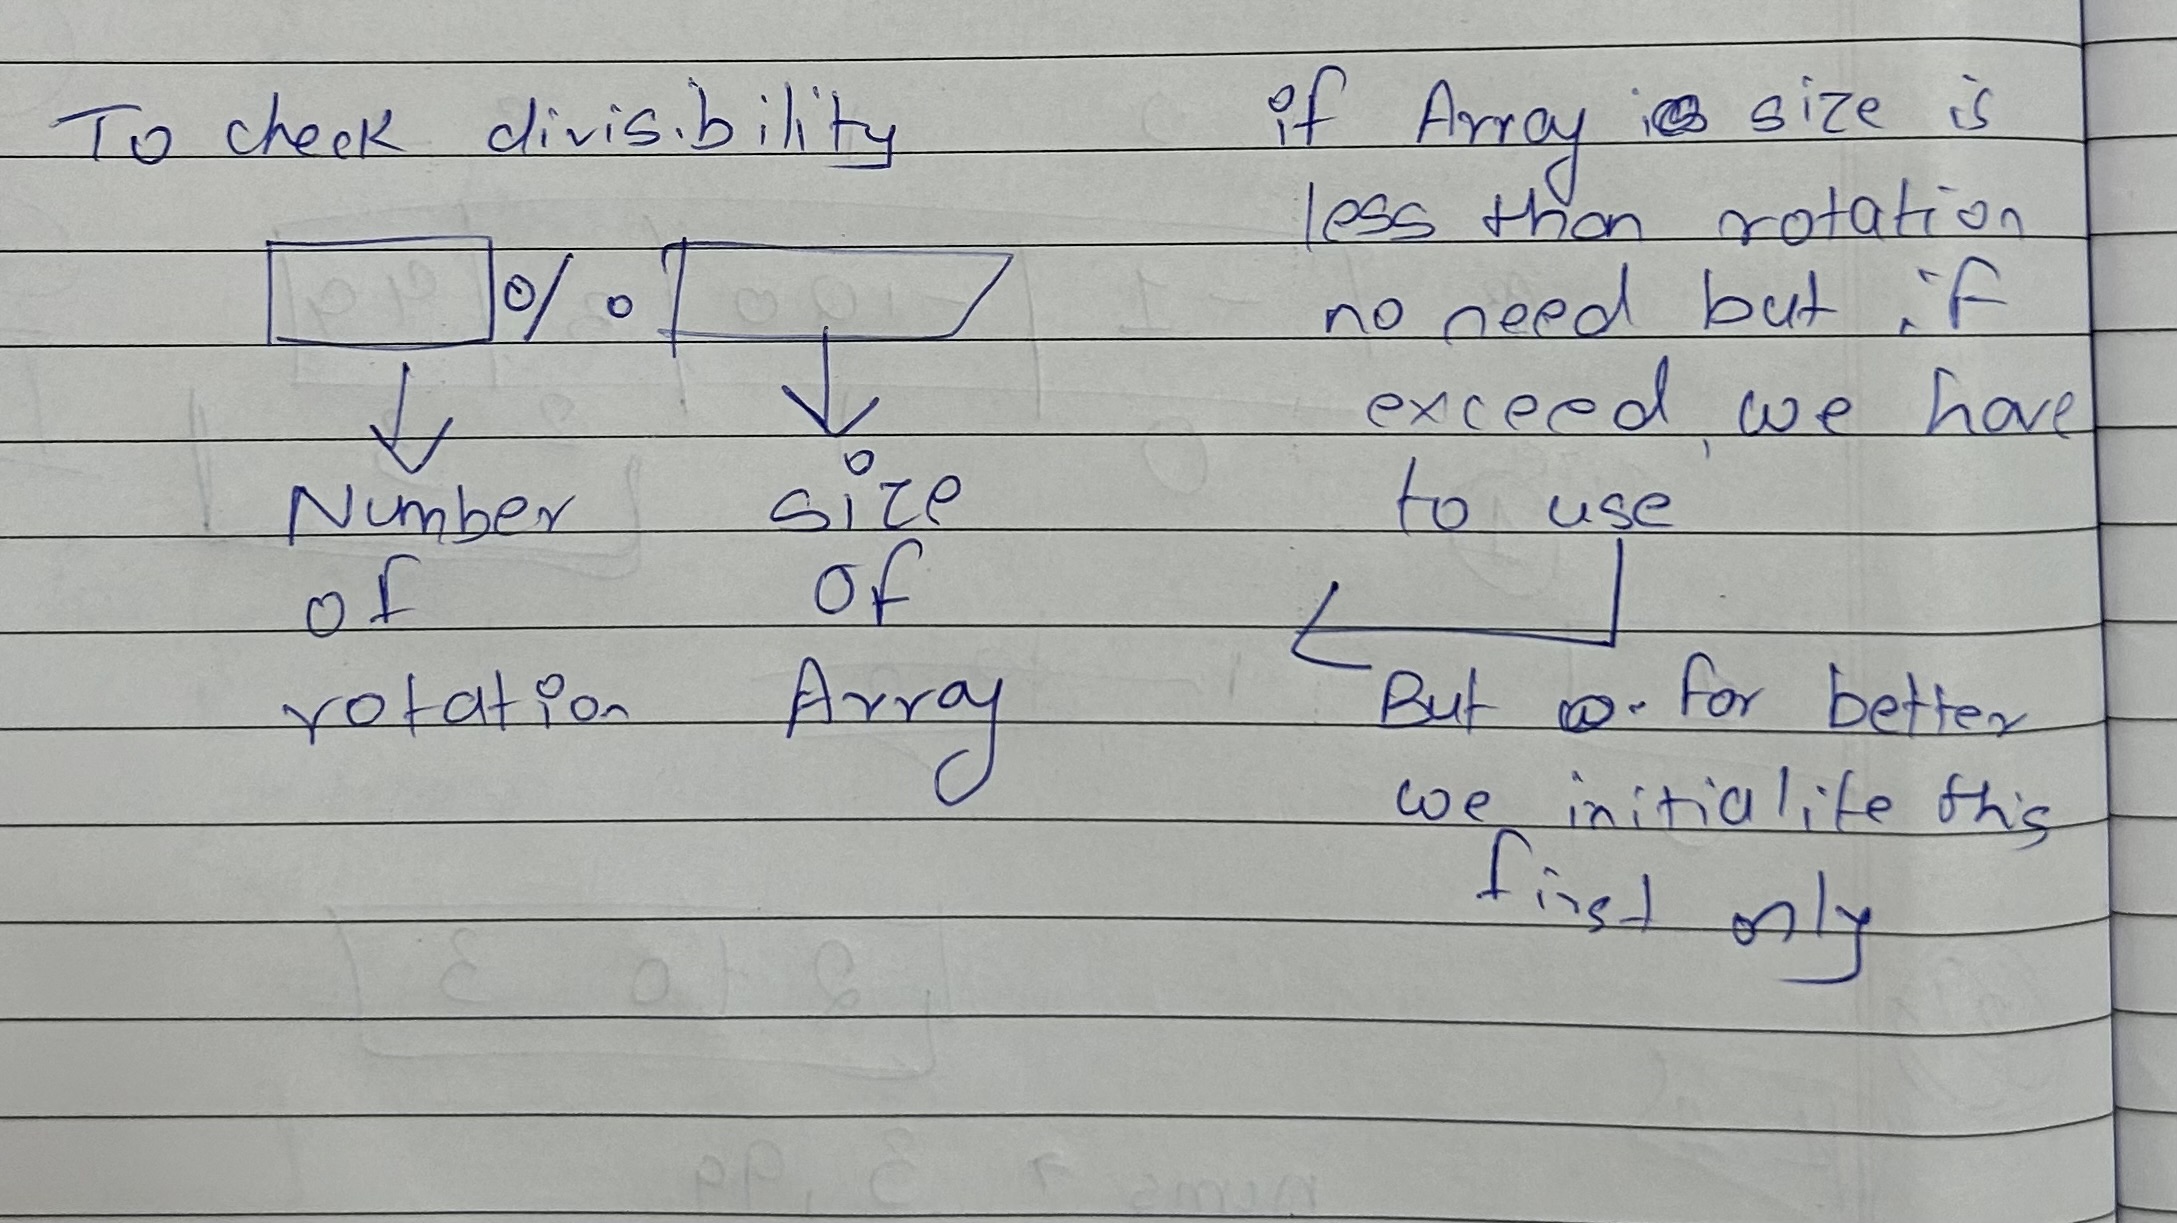 To check divisibility
%
Number size
of of
rotation Array
if Array size is
less than rotation
no need but if
exceed, we have
to use
But for better
we initialize this
first only